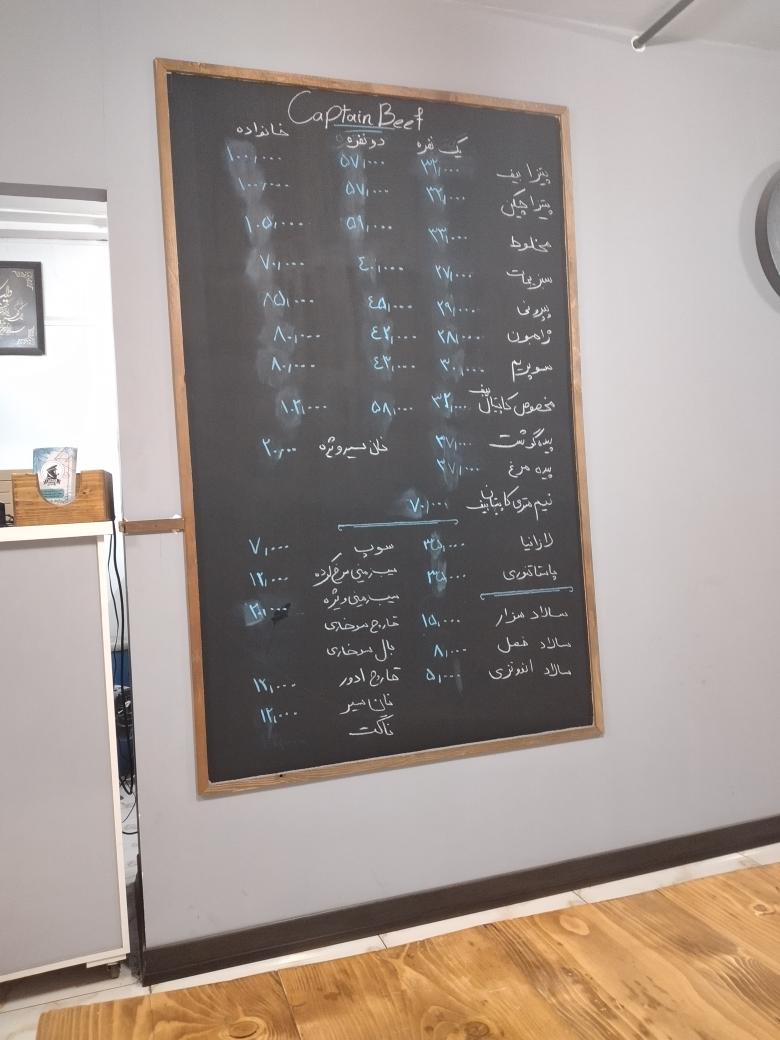 Captain Beef
یک نفره دو نفره خانواده
پیتزا بیف ۳۲,۰۰۰ ۵۷,۰۰۰ ۱۰۰,۰۰۰
پیتزا چیکن ۳۲,۰۰۰ ۵۷,۰۰۰ ۱۰۰,۰۰۰
مخلوط ۳۳,۰۰۰ ۵۹,۰۰۰ ۱۰۵,۰۰۰
سبزیجات ۲۷,۰۰۰ ٤۰,۰۰۰ ۷۰,۰۰۰
پپرونی ۲۹,۰۰۰ ٤۵,۰۰۰ ۸۵,۰۰۰
ژامبون ۲۸,۰۰۰ ٤۲,۰۰۰ ۸۰,۰۰۰
سوپریم ۳۰,۰۰۰ ٤۳,۰۰۰ ۸۰,۰۰۰
مخصوص کاپیتان بیف ۳۲,۰۰۰ ۵۸,۰۰۰ ۱۰۲,۰۰۰
پیده گوشت ۳۷,۰۰۰ نان سیر ویژه ۲۰,۰۰۰
پیده مرغ ۳۷,۰۰۰
نیم متری کاپیتان بیف ۷۰,۰۰۰
لازانیا ۳۵,۰۰۰
پاستا تنوری ۳۵,۰۰۰
سالاد سزار ۱۵,۰۰۰
سالاد فصل ۸,۰۰۰
سالاد اندونزی ۵,۰۰۰
سوپ ۷,۰۰۰
سیب زمینی سرخ کرده ۱۲,۰۰۰
سیب زمینی ویژه ۲۰,۰۰۰
قارچ سوخاری
بال سوخاری
قارچ ادور ۱۲,۰۰۰
نان سیر ۱۲,۰۰۰
ناگت